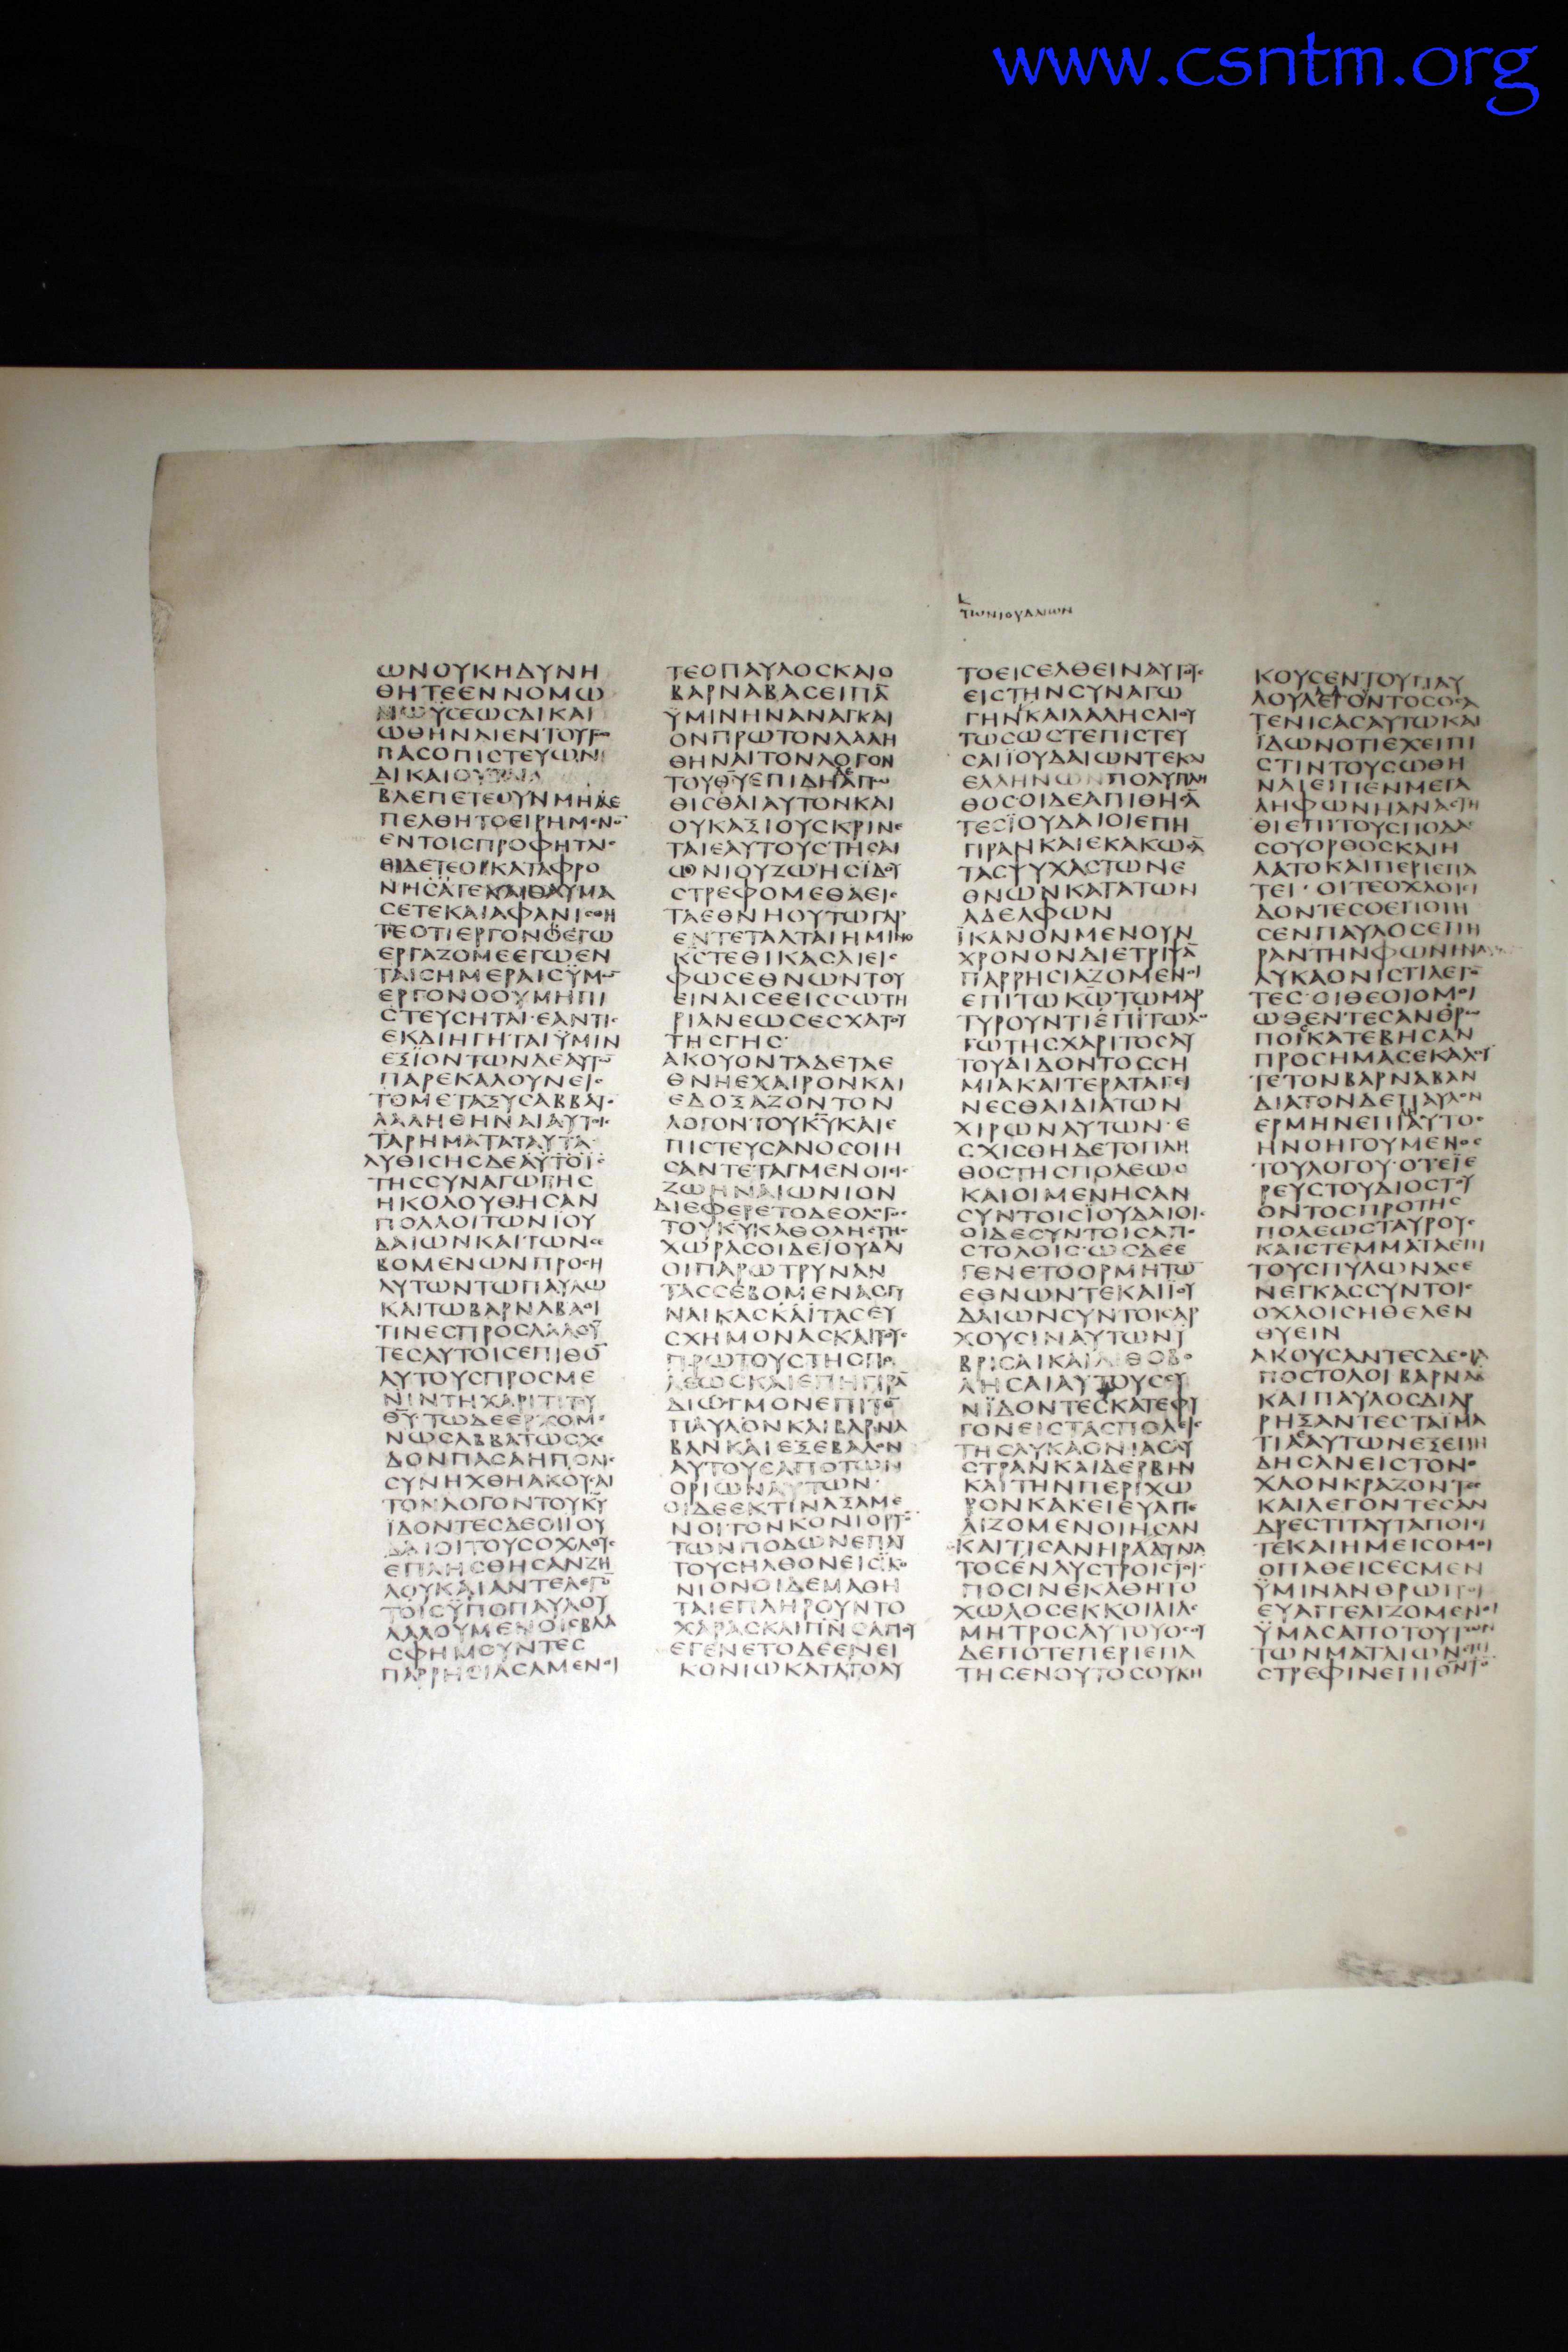 www.csntm.org
τωνιουδαιων
ΩΝΟΥΚΗΔΥΝΗ
ΘΗΤΕΕΝΝΟΜΩ
ΜΩΫΣΕΩΣΔΙΚΑΙ
ΩΘΗΝΑΙΕΝΤΟΥΤΩ
ΠΑΣΟΠΙΣΤΕΥΩΝ
ΔΙΚΑΙΟΥΤΑΙ
ΒΛΕΠΕΤΕΟΥΝΜΗ
ΠΕΛΘΗΤΟΕΙΡΗΜΕΝΟ
ΕΝΤΟΙΣΠΡΟΦΗΤΑΙΣ
ΪΔΕΤΕΟΙΚΑΤΑΦΡΟ
ΝΗΤΑΙΚΑΙΘΑΥΜΑ
ΣΕΤΕΚΑΙΑΦΑΝΙΣΘΗ
ΤΕΟΤΙΕΡΓΟΝΟΕΓΩ
ΕΡΓΑΖΟΜΕΕΓΩΕΝ
ΤΑΙΣΗΜΕΡΑΙΣΫΜΩ
ΕΡΓΟΝΟΟΥΜΗΠΙ
ΣΤΕΥΣΗΤΑΙ·ΕΑΝΤΙΣ
ΕΚΔΙΗΓΗΤΑΙΫΜΙΝ
ΕΞΪΟΝΤΩΝΔΕΑΥΤΩ
ΠΑΡΕΚΑΛΟΥΝΕΙΣ
ΤΟΜΕΤΑΞΥΣΑΒΒΑΤΟ
ΛΑΛΗΘΗΝΑΙΑΥΤΟΙΣ
ΤΑΡΗΜΑΤΑΤΑΥΤΑ
ΛΥΘΙΣΗΣΔΕΑΥΤΟΙΣ
ΤΗΣΣΥΝΑΓΩΓΗΣ
ΗΚΟΛΟΥΘΗΣΑΝ
ΠΟΛΛΟΙΤΩΝΪΟΥ
ΔΑΙΩΝΚΑΙΤΩΝΣΕ
ΒΟΜΕΝΩΝΠΡΟΣΗ
ΛΥΤΩΝΤΩΠΑΥΛΩ
ΚΑΙΤΩΒΑΡΝΑΒΑΟΙ
ΤΙΝΕΣΠΡΟΣΛΑΛΟΥ
ΤΕΣΑΥΤΟΙΣΕΠΙΘΟ
ΑΥΤΟΥΣΠΡΟΣΜΕ
ΝΙΝΤΗΧΑΡΙΤΙΤΟΥ
ΘΥΤΩΔΕΕΡΧΟΜΕ
ΝΩΣΑΒΒΑΤΩΣΧΕ
ΔΟΝΠΑΣΑΗΠΟΛΙΣ
ΣΥΝΗΧΘΗΑΚΟΥΣΑΙ
ΤΟΝΛΟΓΟΝΤΟΥΚΥ
ΪΔΟΝΤΕΣΔΕΟΙΪΟΥ
ΔΑΙΟΙΤΟΥΣΟΧΛΟΥΣ
ΕΠΛΗΣΘΗΣΑΝΖΗ
ΛΟΥΚΑΙΑΝΤΕΛΕΓΟ
ΤΟΙΣΫΠΟΠΑΥΛΟΥ
ΛΑΛΟΥΜΕΝΟΙΣΒΛΑ
ΣΦΗΜΟΥΝΤΕΣ
ΠΑΡΡΗΣΙΑΣΑΜΕΝΟΙ
ΤΕΟΠΑΥΛΟΣΚΑΙΟ
ΒΑΡΝΑΒΑΣΕΙΠΑ
ΫΜΙΝΗΝΑΝΑΓΚΑΙ
ΟΝΠΡΩΤΟΝΛΑΛΗ
ΘΗΝΑΙΤΟΝΛΟΓΟΝ
ΤΟΥΘΥΕΠΙΔΗΑΠΩ
ΘΙΣΘΑΙΑΥΤΟΝΚΑΙ
ΟΥΚΑΞΙΟΥΣΚΡΙΝΕ
ΤΑΙΕΑΥΤΟΥΣΤΗΣΑΙ
ΩΝΙΟΥΖΩΗΣΪΔΟΥ
ΣΤΡΕΦΟΜΕΘΑΕΙΣ
ΤΑΕΘΝΗΟΥΤΩΓΑΡ
ΕΝΤΕΤΑΛΤΑΙΗΜΙΝΟ
ΚΣΤΕΘΙΚΑΣΑΙΕΙΣ
ΦΩΣΕΘΝΩΝΤΟΥ
ΕΙΝΑΙΣΕΕΙΣΣΩΤΗ
ΡΙΑΝΕΩΣΕΣΧΑΤΟΥ
ΤΗΣΓΗΣ
ΑΚΟΥΟΝΤΑΔΕΤΑΕ
ΘΝΗΕΧΑΙΡΟΝΚΑΙ
ΕΔΟΞΑΖΟΝΤΟΝ
ΛΟΓΟΝΤΟΥΚΥΚΑΙΕ
ΠΙΣΤΕΥΣΑΝΟΣΟΙΗ
ΣΑΝΤΕΤΑΓΜΕΝΟΙΕΙΣ
ΖΩΗΝΑΙΩΝΙΟΝ
ΔΙΕΦΕΡΕΤΟΔΕΟΛΟΓΟΣ
ΤΟΥΚΥΚΑΘΟΛΗΣΤΗΣ
ΧΩΡΑΣΟΙΔΕΪΟΥΔΑΙ
ΟΙΠΑΡΩΤΡΥΝΑΝ
ΤΑΣΣΕΒΟΜΕΝΑΣΓΥ
ΝΑΙΚΑΣΚΑΙΤΑΣΕΥ
ΣΧΗΜΟΝΑΣΚΑΙΤΟΥΣ
ΠΡΩΤΟΥΣΤΗΣΠΟ
ΛΕΩΣΚΑΙΕΠΗΓΙΡΑ
ΔΙΩΓΜΟΝΕΠΙΤΟ
ΠΑΥΛΟΝΚΑΙΒΑΡΝΑ
ΒΑΝΚΑΙΕΞΕΒΑΛΟΝ
ΑΥΤΟΥΣΑΠΟΤΩΝ
ΟΡΙΩΝΑΥΤΩΝ
ΟΙΔΕΕΚΤΙΝΑΞΑΜΕ
ΝΟΙΤΟΝΚΟΝΙΟΡΤΟ
ΤΩΝΠΟΔΩΝΕΠΑΥ
ΤΟΥΣΗΛΘΟΝΕΙΣΪΚΟ
ΝΙΟΝΟΙΔΕΜΑΘΗ
ΤΑΙΕΠΛΗΡΟΥΝΤΟ
ΧΑΡΑΣΚΑΙΠΝΣΑΓΙΟΥ
ΕΓΕΝΕΤΟΔΕΕΝΕΙ
ΚΟΝΙΩΚΑΤΑΤΟΑΥ
ΤΟΕΙΣΕΛΘΕΙΝΑΥΤΟΥΣ
ΕΙΣΤΗΝΣΥΝΑΓΩ
ΓΗΝΚΑΙΛΑΛΗΣΑΙΟΥ
ΤΩΣΩΣΤΕΠΙΣΤΕΥ
ΣΑΙΪΟΥΔΑΙΩΝΤΕΚΑΙ
ΕΛΛΗΝΩΝΠΟΛΥΠΛΗ
ΘΟΣΟΙΔΕΑΠΙΘΗΣΑ
ΤΕΣΪΟΥΔΑΙΟΙΕΠΗ
ΓΙΡΑΝΚΑΙΕΚΑΚΩΣΑ
ΤΑΣΨΥΧΑΣΤΩΝΕ
ΘΝΩΝΚΑΤΑΤΩΝ
ΑΔΕΛΦΩΝ
ΪΚΑΝΟΝΜΕΝΟΥΝ
ΧΡΟΝΟΝΔΙΕΤΡΙΨΑ
ΠΑΡΡΗΣΙΑΖΟΜΕΝΟΙ
ΕΠΙΤΩΚΩΤΩΜΑΡ
ΤΥΡΟΥΝΤΙΕΠΙΤΩΛΟ
ΓΩΤΗΣΧΑΡΙΤΟΣΑΥ
ΤΟΥΔΙΔΟΝΤΟΣΣΗ
ΜΙΑΚΑΙΤΕΡΑΤΑΓΕΙ
ΝΕΣΘΑΙΔΙΑΤΩΝ
ΧΙΡΩΝΑΥΤΩΝ·Ε
ΣΧΙΣΘΗΔΕΤΟΠΛΗ
ΘΟΣΤΗΣΠΟΛΕΩΣ
ΚΑΙΟΙΜΕΝΗΣΑΝ
ΣΥΝΤΟΙΣΪΟΥΔΑΙΟΙΣ
ΟΙΔΕΣΥΝΤΟΙΣΑΠΟ
ΣΤΟΛΟΙΣ·ΩΣΔΕΕ
ΓΕΝΕΤΟΟΡΜΗΤΩ
ΕΘΝΩΝΤΕΚΑΙΪΟΥ
ΔΑΙΩΝΣΥΝΤΟΙΣΑΡ
ΧΟΥΣΙΝΑΥΤΩΝΫ
ΒΡΙΣΑΙΚΑΙΛΙΘΟΒΟ
ΛΗΣΑΙΑΥΤΟΥΣΣΥ
ΝΪΔΟΝΤΕΣΚΑΤΕΦΥ
ΓΟΝΕΙΣΤΑΣΠΟΛΕΙΣ
ΤΗΣΛΥΚΑΟΝΙΑΣΛΥ
ΣΤΡΑΝΚΑΙΔΕΡΒΗΝ
ΚΑΙΤΗΝΠΕΡΙΧΩ
ΡΟΝΚΑΚΕΙΕΥΑΓΓΕ
ΛΙΖΟΜΕΝΟΙΗΣΑΝ
ΚΑΙΤΙΣΑΝΗΡΑΔΥΝΑ
ΤΟΣΕΝΛΥΣΤΡΟΙΣΤΟΙΣ
ΠΟΣΙΝΕΚΑΘΗΤΟ
ΧΩΛΟΣΕΚΚΟΙΛΙΑΣ
ΜΗΤΡΟΣΑΥΤΟΥΟΣΟΥ
ΔΕΠΟΤΕΠΕΡΙΕΠΑ
ΤΗΣΕΝΟΥΤΟΣΟΥΚΗ
ΚΟΥΣΕΝΤΟΥΠΑΥ
ΛΟΥΛΕΓΟΝΤΟΣΟΣΑ
ΤΕΝΙΣΑΣΑΥΤΩΚΑΙ
ΪΔΩΝΟΤΙΕΧΕΙΠΙ
ΣΤΙΝΤΟΥΣΩΘΗ
ΝΑΙΕΙΠΕΝΜΕΓΑ
ΛΗΦΩΝΗΑΝΑΣΤΗ
ΘΙΕΠΙΤΟΥΣΠΟΔΑΣ
ΣΟΥΟΡΘΟΣΚΑΙΗ
ΛΑΤΟΚΑΙΠΕΡΙΕΠΑ
ΤΕΙ·ΟΙΤΕΟΧΛΟΙΪ
ΔΟΝΤΕΣΟΕΠΟΙΗ
ΣΕΝΠΑΥΛΟΣΕΠΗ
ΡΑΝΤΗΝΦΩΝΗΝΑΥ
ΛΥΚΑΟΝΙΣΤΙΛΕΓΟ
ΤΕΣ·ΟΙΘΕΟΙΟΜΟΙ
ΩΘΕΝΤΕΣΑΝΘΡΩ
ΠΟΙΚΑΤΕΒΗΣΑΝ
ΠΡΟΣΗΜΑΣΕΚΑΛΟΥ
ΤΕΤΟΝΒΑΡΝΑΒΑΝ
ΔΙΑΤΟΝΔΕΠΑΥΛΟΝ
ΕΡΜΗΝΕΠΙΑΥΤΟΣ
ΗΝΟΗΓΟΥΜΕΝΟΣ
ΤΟΥΛΟΓΟΥ·ΟΤΕΪΕ
ΡΕΥΣΤΟΥΔΙΟΣΤΟΥ
ΟΝΤΟΣΠΡΟΤΗΣ
ΠΟΛΕΩΣΤΑΥΡΟΥΣ
ΚΑΙΣΤΕΜΜΑΤΑΕΠΙ
ΤΟΥΣΠΥΛΩΝΑΣΕ
ΝΕΓΚΑΣΣΥΝΤΟΙΣ
ΟΧΛΟΙΣΗΘΕΛΕΝ
ΘΥΕΙΝ
ΑΚΟΥΣΑΝΤΕΣΔΕΟΙΑ
ΠΟΣΤΟΛΟΙΒΑΡΝΑΒΑΣ
ΚΑΙΠΑΥΛΟΣΔΙΑΡ
ΡΗΞΑΝΤΕΣΤΑΪΜΑ
ΤΙΑΕΑΥΤΩΝΕΞΕΠΗ
ΔΗΣΑΝΕΙΣΤΟΝΟ
ΧΛΟΝΚΡΑΖΟΝΤΕΣ
ΚΑΙΛΕΓΟΝΤΕΣΑΝ
ΔΡΕΣΤΙΤΑΥΤΑΠΟΙΕΙ
ΤΕΚΑΙΗΜΕΙΣΟΜΟΙ
ΟΠΑΘΕΙΣΕΣΜΕΝ
ΫΜΙΝΑΝΘΡΩΠΟΙ
ΕΥΑΓΓΕΛΙΖΟΜΕΝΟΙ
ΫΜΑΣΑΠΟΤΟΥΤΩΝ
ΤΩΝΜΑΤΑΙΩΝΕΠΙ
ΣΤΡΕΦΙΝΕΠΙΘΝΤΟ